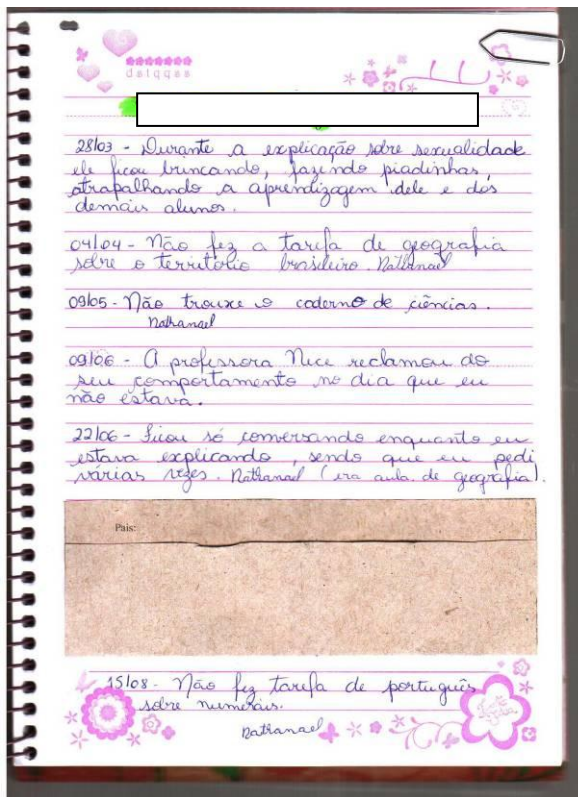 dstqqss
28/03 - Durante a explicação sobre sexualidade
ele ficou brincando, fazendo piadinhas,
atrapalhando a aprendizagem dele e dos
demais alunos.
04/04 - Não fez a tarefa de geografia
sobre o território brasileiro. Nathanael
09/05 - Não trouxe o caderno de ciências.
Nathanael
09/06 - A professora Nice reclamou do
seu comportamento no dia que eu
não estava.
22/06 - Ficou só conversando enquanto eu
estava explicando, sendo que eu pedi
várias vezes. Nathanael (era aula de geografia).
Pais:
15/08 - Não fez tarefa de português
sobre numerais.
Nathanael